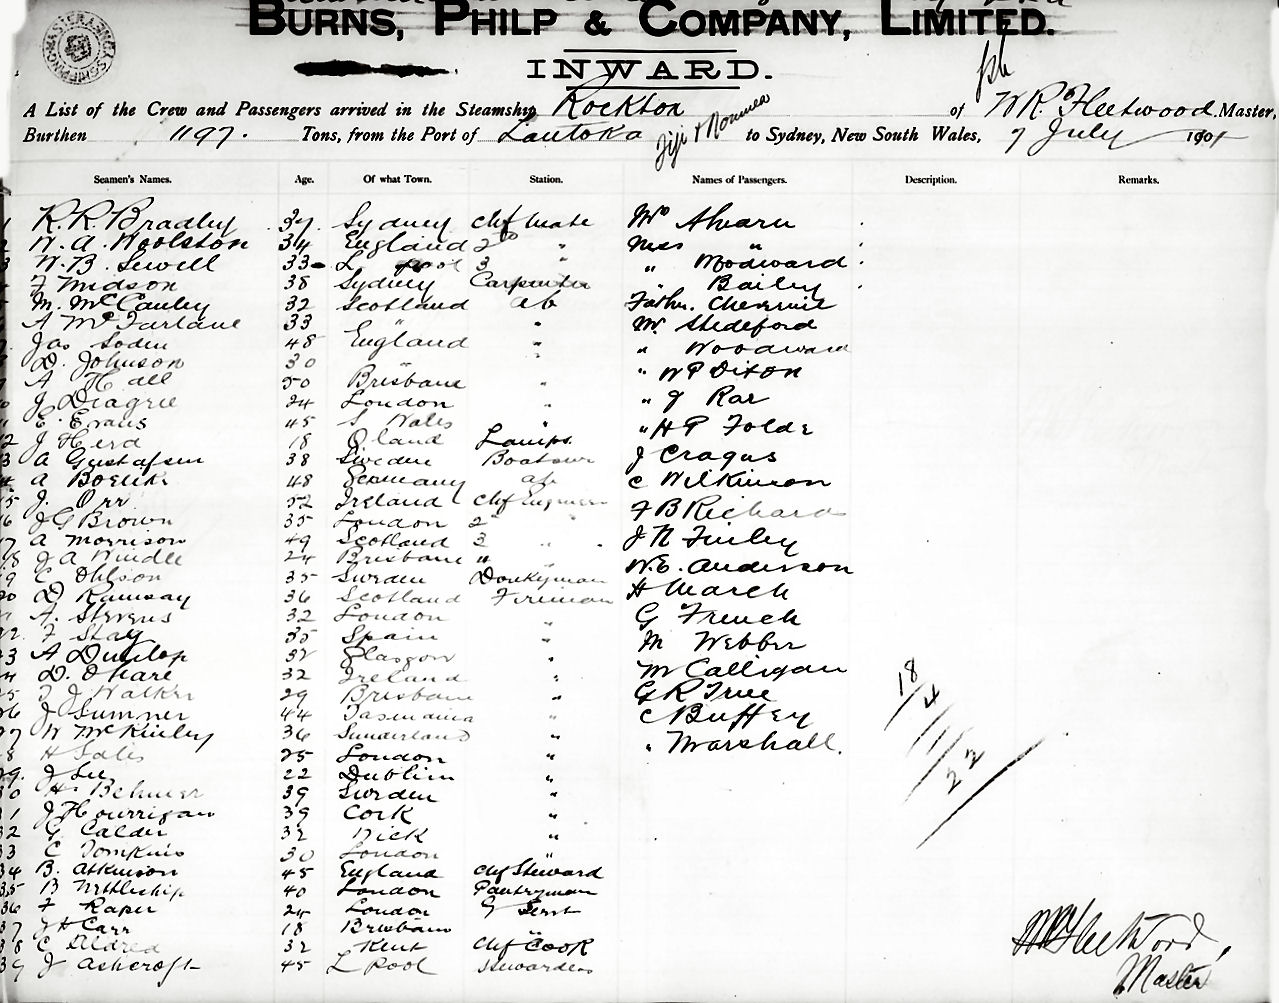 BURNS, PHILP & COMPANY, LIMITED.
INWARD.
A List of the Crew and Passengers arrived in the Steamship Rockton of W.R. Fleetwood Master,
Burthen 1197. Tons, from the Port of Lautoka Fiji & Noumea to Sydney, New South Wales, 7 July 1901
Seamen's Names. Age. Of what Town. Station. Names of Passengers. Description. Remarks.
1 R. R. Bradley 39 Sydney chf mate Mr Ahearn
2 W. A. Woolston 34 England 2nd " Miss "
3 W. B. Sewell 33 L pool 3 " " Woodward
4 38 Sydney Carpenter " Bailey
5 M. McCauley 32 Scotland ab Father
6 A McFarlane 33 " " Mr Shedeford
7 Jas Soden 48 England " " Woodward
8 D. Johnson 30 " " " W P Dixon
9 A Hall 50 Brisbane "
10 J 24 London " " J Rae
11 E. Evans 45 S Wales " " H P Folds
12 J Herd 18 Qland Lamps J Cragus
13 A Gustafsen 38 Sweden Boatswn
14 A 48 Germany ab C Wilkinson
15 J. Orr 52 Ireland chf Engineer F B Richards
16 J G Brown 35 London 2nd "
17 A Morrison 49 Scotland 3 " J N Finley
18 J A Windle 24 Brisbane " "
19 C Ohlson 35 Sweden Donkeyman W. E. Anderson
20 D Ramsay 36 Scotland Fireman H March
21 A. Stevens 32 London " G French
22 F Stay 35 Spain " M Webber
23 A Dunlop 38 Glasgow "
24 D. Ohare 32 Ireland " M Calligan
25 T J Walker 29 Brisbane " G R True
26 J Sumner 44 Tasmania " C Buffey
27 W McKinley 36 Sunderland " " Marshall.
28 H Sales 25 London "
29 J Lee 22 Dublin "
30 H. Behmer 39 Sweden "
31 J Hourrigan 39 Cork "
32 G. Calder 32 Dick "
33 C Tomkins 30 London "
34 B. Atkinson 45 England chf Steward
35 B Nettleship 40 London Pantryman
36 F Raper 24 London G Servt
37 J H Carr 18 Brisbane "
38 C Eldred 32 Kent chf Cook
39 J Ashcroft 45 L Pool Stewardess
18
4
22
W R Fleetwood,
Master